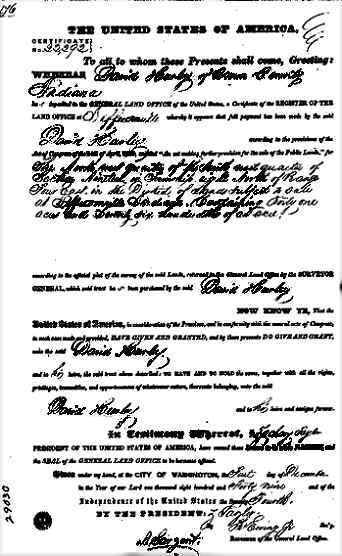 THE UNITED STATES OF AMERICA,
CERTIFICATE
No. 22292
To all to whom these Presents shall come, Greeting:
WHEREAS David Hawley of Brown County
Indiana
deposited in the GENERAL LAND OFFICE of the United States, a Certificate of the REGISTER OF THE
LAND OFFICE at Jeffersonville whereby it appears that full payment has been made by the said
David Hawley according to the provisions of the
Act of Congress of the 24th of April, 1820, entitled "An act making further provision for the sale of the Public Lands," for
the north west quarter of the quarter of
Section in Township eight North of Range
East, in the District of Lands subject to sale
at Jeffersonville Indiana, Containing forty one
acres and Seventy six hundredths of an acre
according to the official plat of the survey of the said Lands, returned to the General Land Office by the SURVEYOR
GENERAL, which said tract has been purchased by the said David Hawley
NOW KNOW YE, That the
United States of America, in consideration of the Premises, and in conformity with the several acts of Congress,
in such case made and provided, HAVE GIVEN AND GRANTED, and by these presents DO GIVE AND GRANT,
unto the said David Hawley
and to his heirs, the said tract above described: TO HAVE AND TO HOLD the same, together with all the rights,
privileges, immunities, and appurtenances of whatsoever nature, thereunto belonging, unto the said
David Hawley and to his heirs and assigns forever.
In Testimony Whereof, I, Zachary Taylor
PRESIDENT OF THE UNITED STATES OF AMERICA, have caused these Letters to be made PATENT, and
the SEAL of the GENERAL LAND OFFICE to be hereunto affixed.
Given under my hand, at the CITY OF WASHINGTON, the first day of December
in the Year of our Lord one thousand eight hundred and forty nine and of the
Independence of the United States the Seventy Fourth.
BY THE PRESIDENT: Z Taylor
By Ewing Jr Sec'y.
Sargent Recorder of the General Land Office.
29030